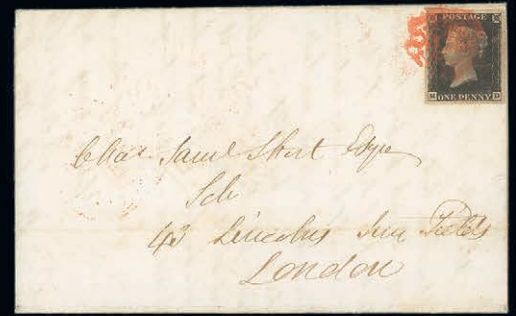 POSTAGE
ONE PENNY
Chas. Saml Short Esqre
Sch
43 Lincolns Inn Fields
London